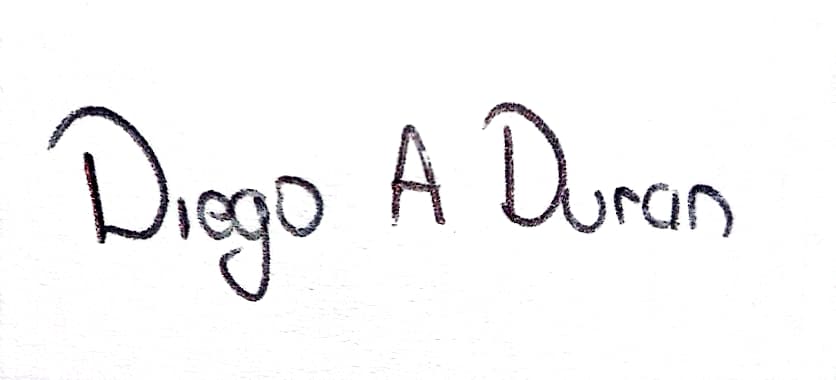 Diego A Duran